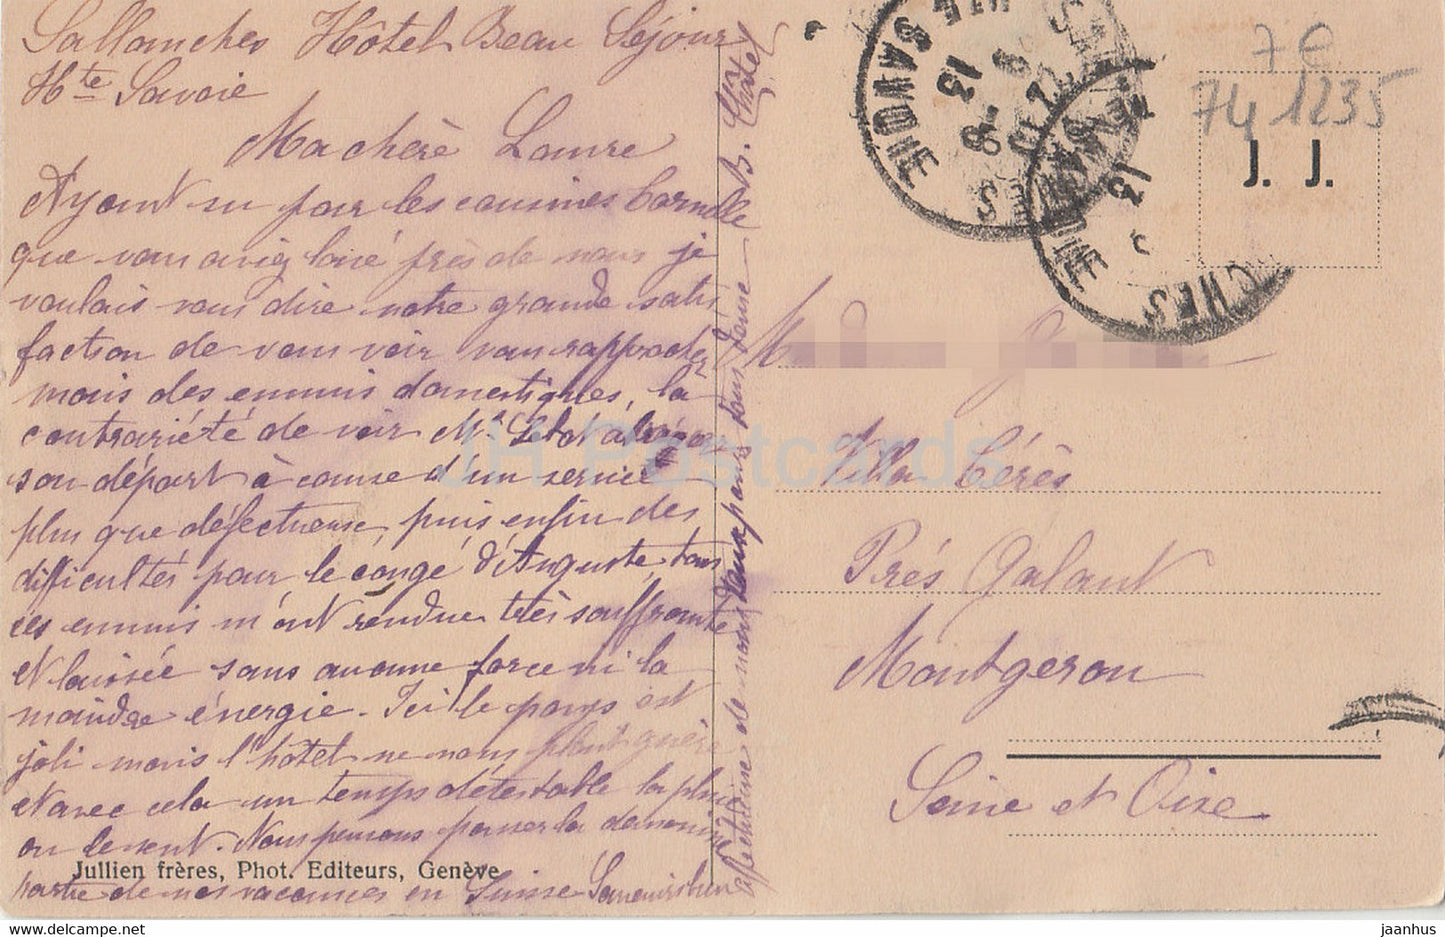 Sallanches Hôtel Beau Séjour
Hte Savoie
Ma chère Laure
Ayant su par les cousines
que vous aviez loué près de nous je
voulais vous dire notre grande satis
faction de vous voir vous rapprocher
mais des ennuis domestiques, la
contrariété de voir Mr
son départ à cause d'un service
plus que défectueuse, puis enfin des
difficultés pour le congé d'Auguste tous
ces ennuis m'ont rendue très souffrante
et laissée sans aucune force ni la
moindre énergie. Ici le pays est
joli mais l'hôtel ne nous plaît guère
et avec cela un temps détestable la pluie
ou le vent. Nous pensons passer la
partie de nos vacances en Suisse
affectueuse de nous deux pour tous deux
Jullien frères, Phot. Editeurs, Genève
7€
74 1235
J. J.
HTE SAVOIE
13
SALLANCHES
Villa Cérès
Prés Galant
Montgeron
Seine et Oise
JH Postcards
jaanhus